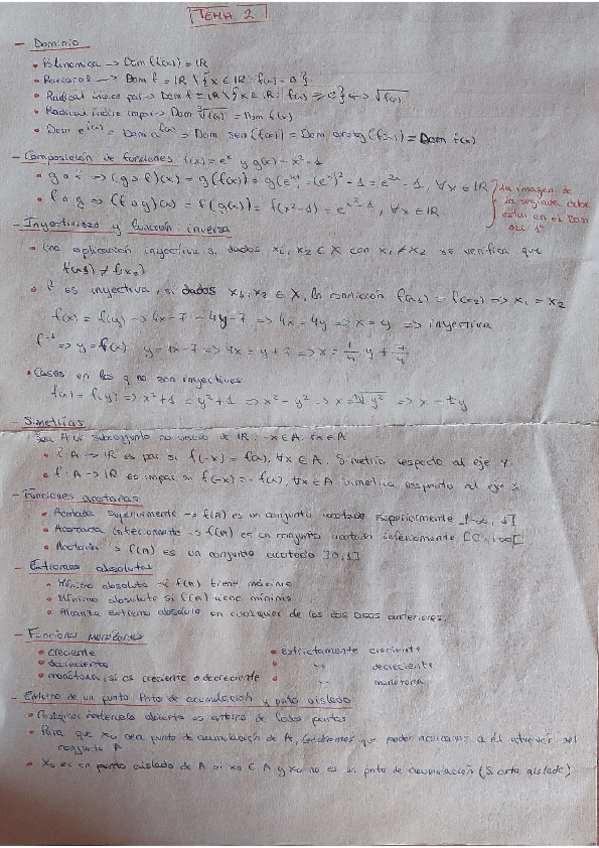 TEMA 2
- Dominio
• Polinómica → Dom f(x) = IR
• Racional → Dom f = IR \ {x ∈ IR: f(x) = 0}
• Radical índice par → Dom f = IR \ {x ∈ IR: f(x) ≥ 0} ↔ √f(x)
• Radical índice impar → Dom ∛f(x) = Dom f(x)
• Dom e^f(x) = Dom a^f(x) = Dom sen(f(x)) = Dom arctg(f(x)) = Dom f(x)
- Composición de funciones f(x) = e^x y g(x) = x² - 1
• g o f → (g o f)(x) = g(f(x)) = g(e^x) = (e^x)² - 1 = e^2x - 1, ∀x ∈ IR
• f o g → (f o g)(x) = f(g(x)) = f(x² - 1) = e^x²-1, ∀x ∈ IR
La imagen de
la segunda debe
estar en el Dom
- Inyectividad y función inversa
• Una aplicación inyectiva si dados x1, x2 ∈ X con x1 ≠ x2 se verifica que
f(x1) ≠ f(x2)
• f es inyectiva, si dados x1, x2 ∈ X, la condición f(x1) = f(x2) ⇒ x1 = x2
f(x) = f(y) → 4x - 7 = 4y - 7 ⇒ 4x = 4y ⇒ x = y ⇒ inyectiva
f⁻¹ ⇒ y = f(x) y = 4x - 7 ⇒ 4x = y + 7 ⇒ x = 1/4 y + 7/4
• Casos en los q no son inyectivas
f(x) = f(y) ⇒ x² + 1 = y² + 1 ⇒ x² = y² → x = √y² ⇒ x = ±y
Simetrías
Sea A un subconjunto no vacío de IR: -x ∈ A, ∀x ∈ A
• f: A → IR es par si f(-x) = f(x), ∀x ∈ A. Simetría respecto al eje Y
• f: A → IR es impar si f(-x) = -f(x), ∀x ∈ A simetría respecto al eje
- Funciones acotadas
• Acotada superiormente → f(A) es un conjunto acotado superiormente
• Acotada inferiormente → f(A) es un conjunto acotado inferiormente
• Acotada → f(A) es un conjunto acotado ]0,1]
- Extremos absolutos
• Máximo absoluto si f(A) tiene máximo
• Mínimo absoluto si f(A) tiene mínimo
• Alcanza extremo absoluto en cualquier de los dos casos anteriores.
- Funciones Monótonas
• creciente • estrictamente creciente
• decreciente • " decreciente
• monótona, si es creciente o decreciente • " monótona
- Entorno de un punto. Pnto de acumulación y pnto aislado
• Cualquier intervalo abierto es entorno de todos puntos
• Para que x0 sea punto de acumulación de A, que poder acercarnos a él través del
conjunto A
• x0 es un punto aislado de A si x0 ∈ A y x0 no es un pnto de acumulación (Si esta aislado)